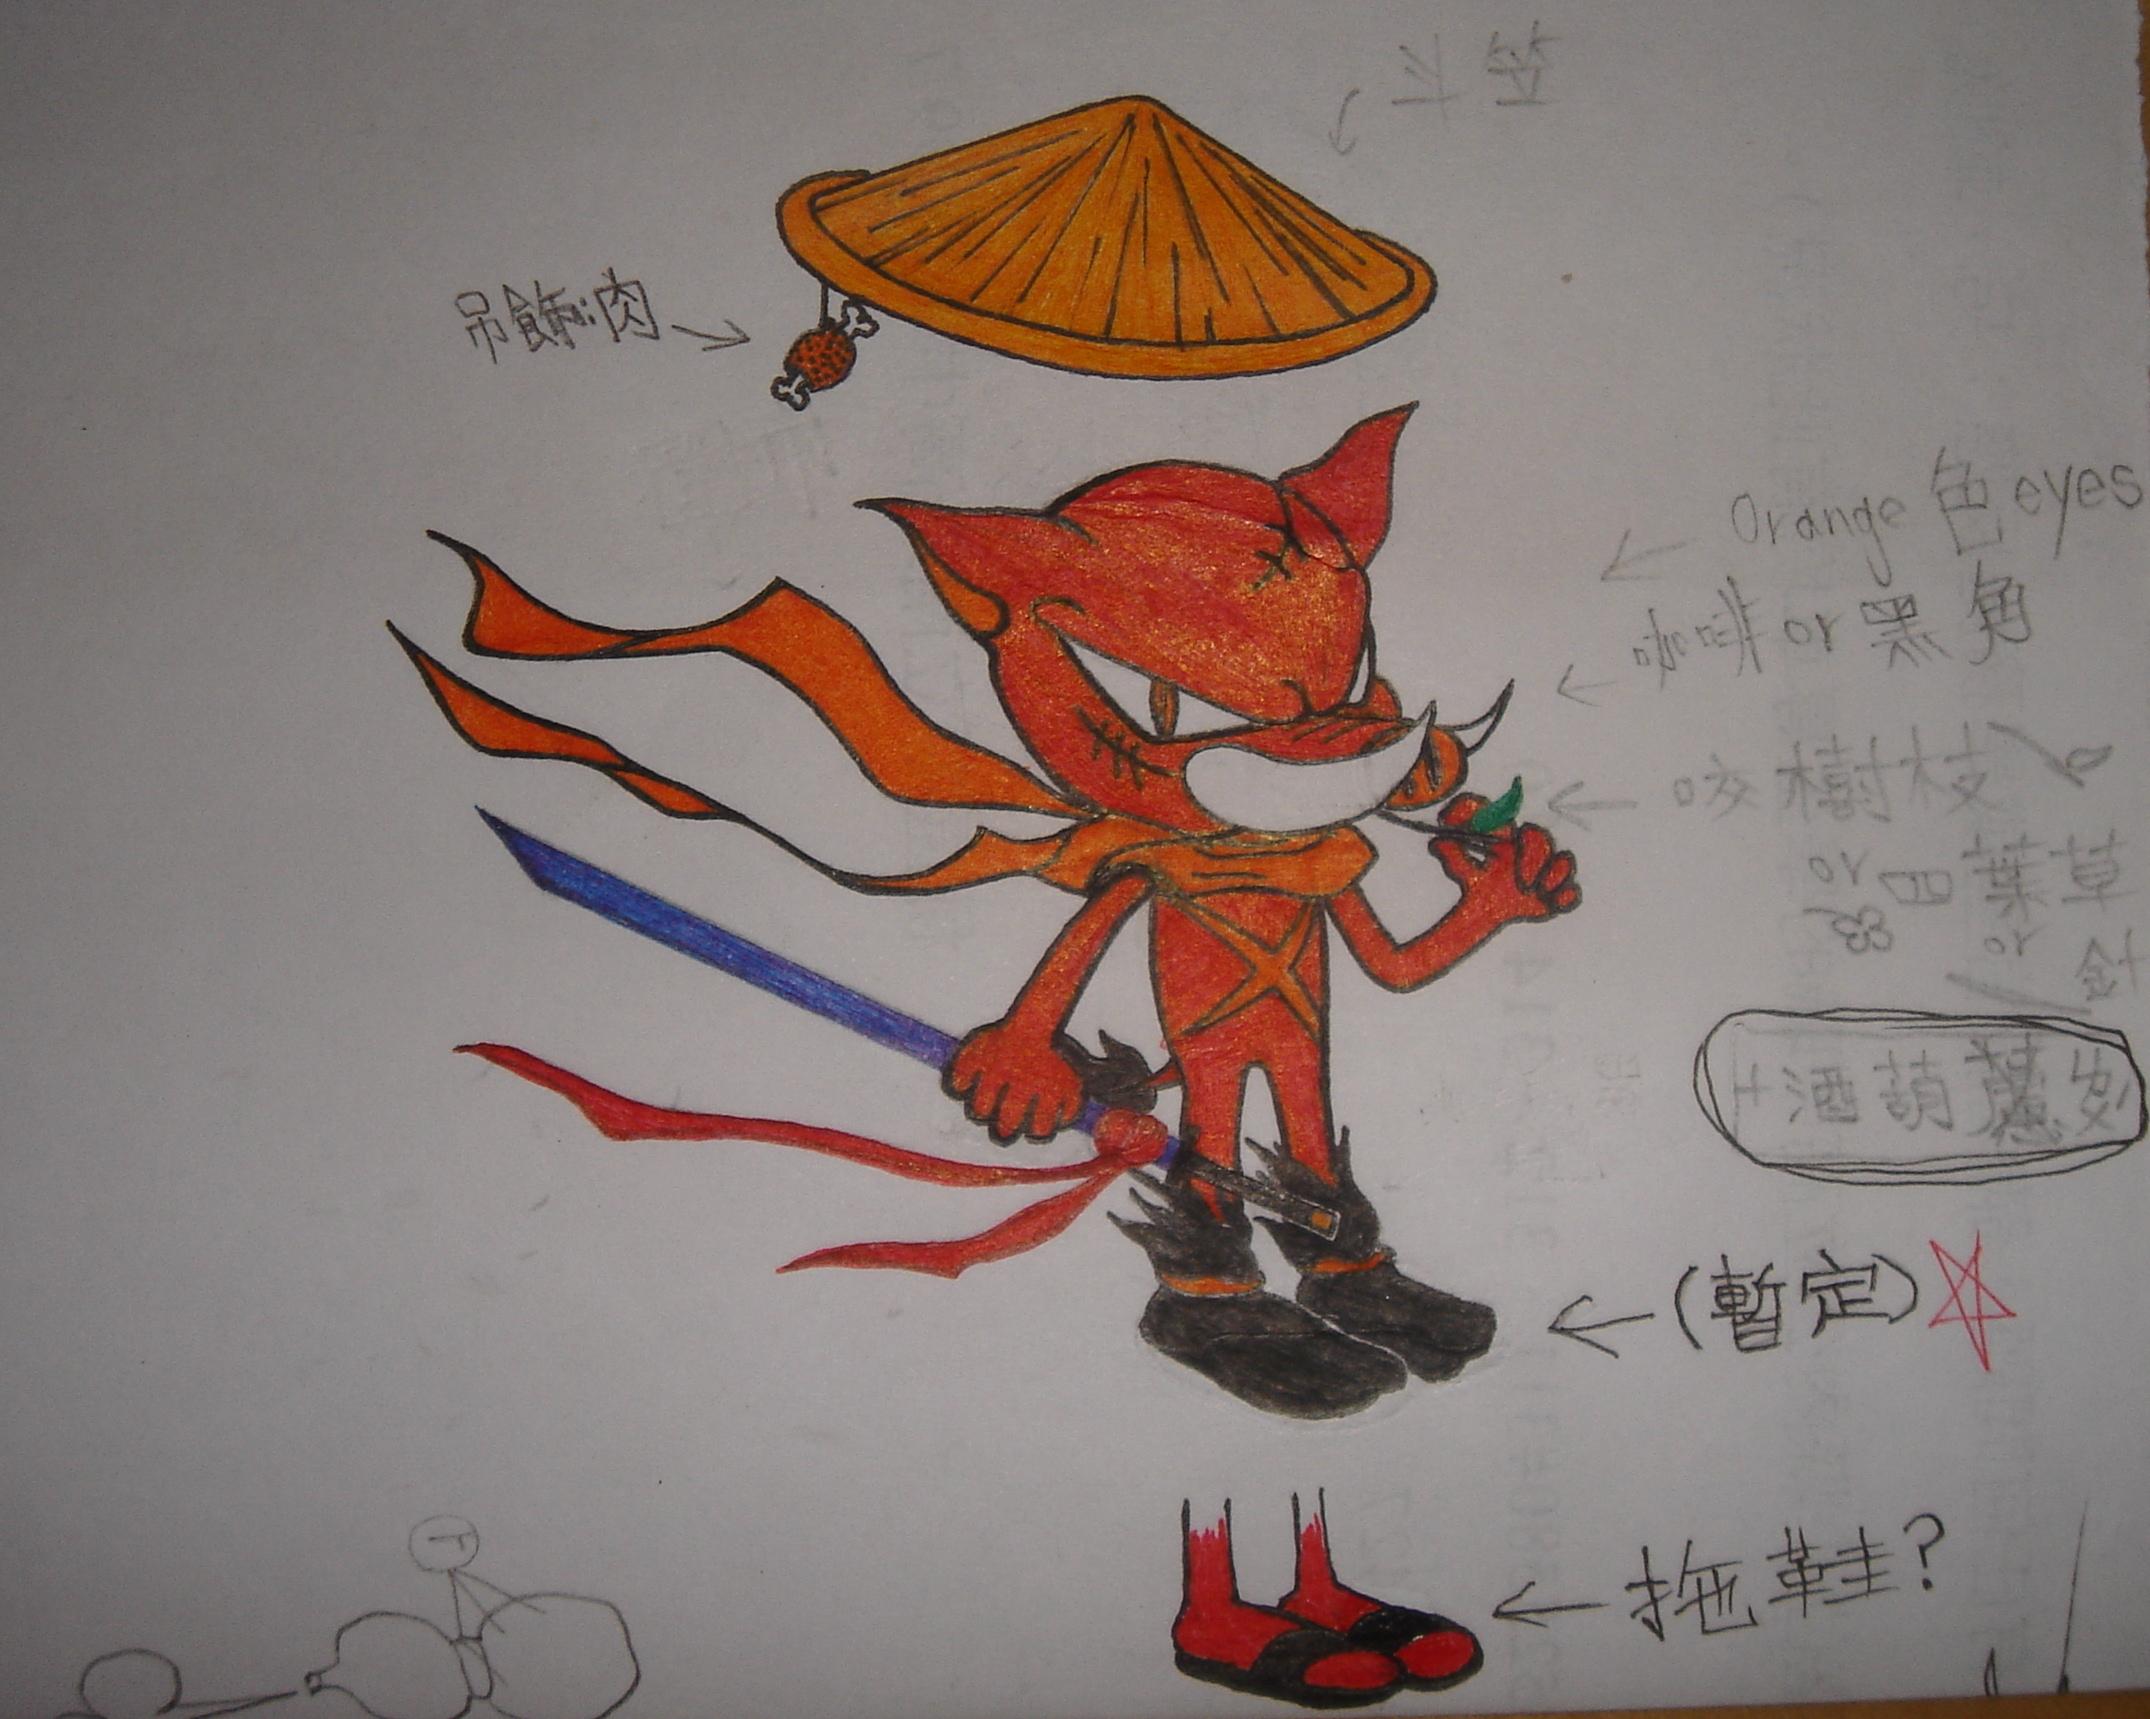 斗笠
吊飾:肉
Orange 色 eyes
咖啡 or 黑色
咬樹枝
or 四葉草
or 針
+酒葫蘆
(暫定)
拖鞋?